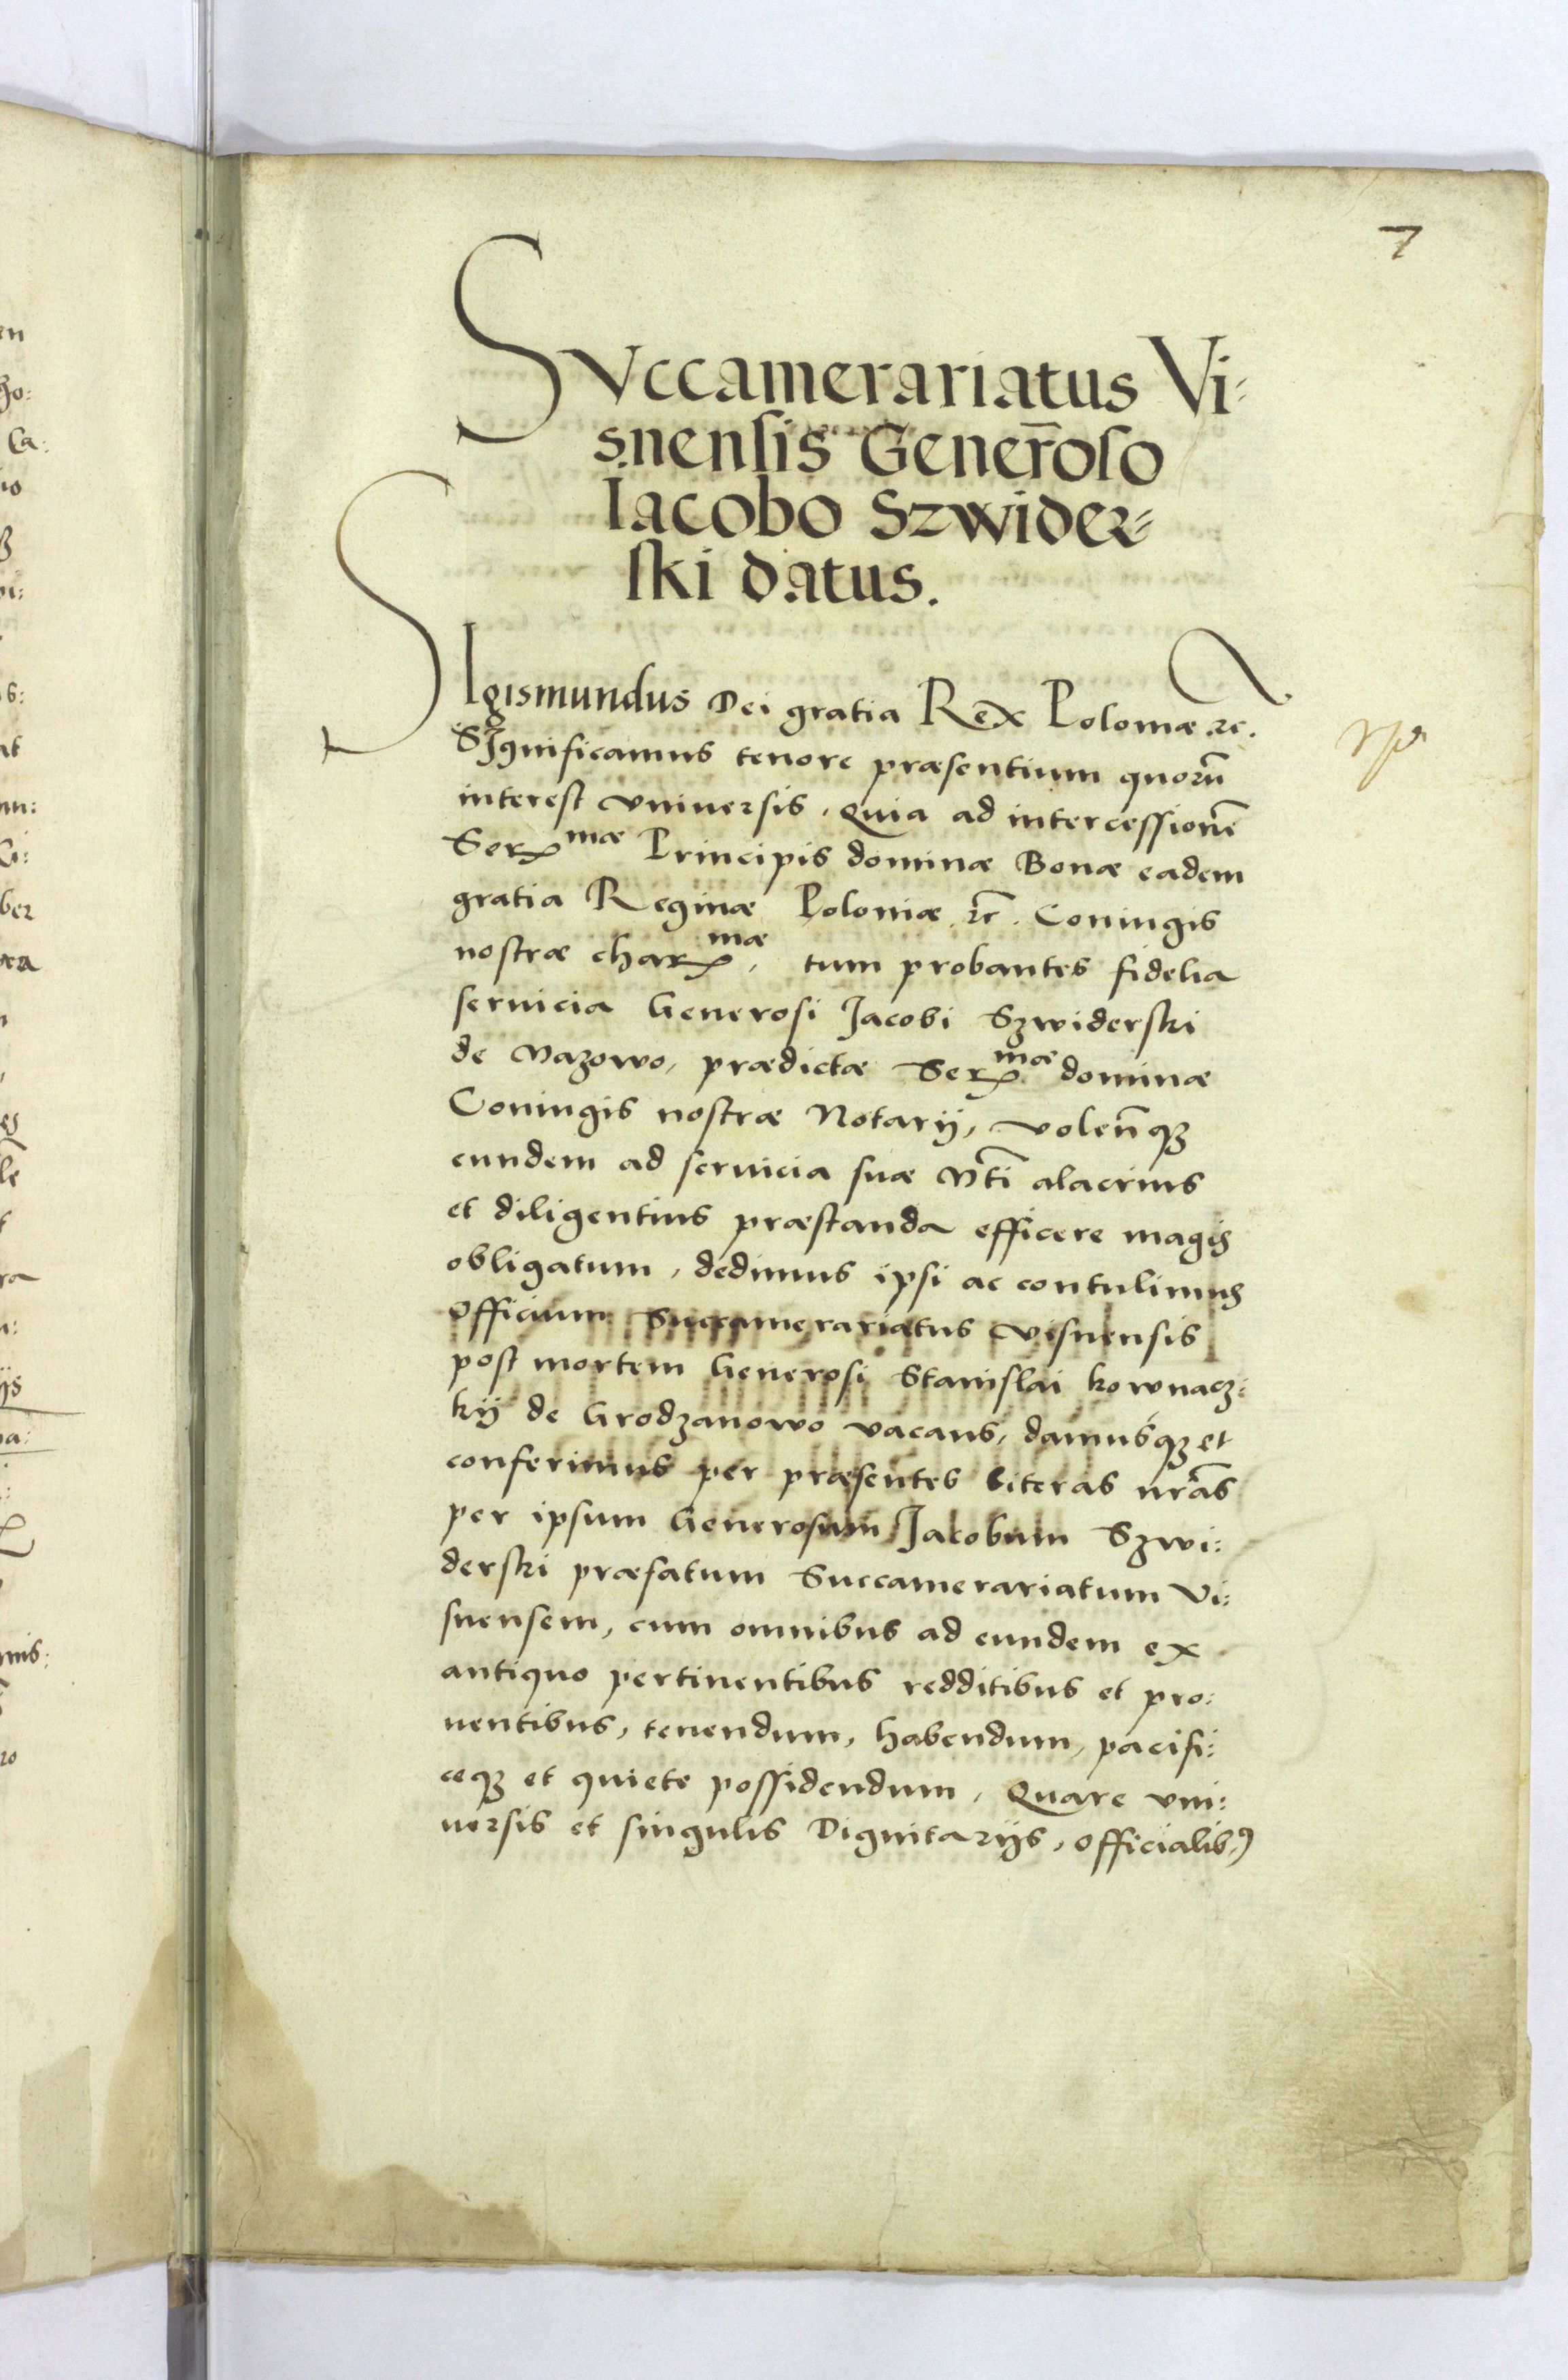 7
Succamerariatus Vi-
snensis Gener̄oso
Iacobo Szwider-
ski datus.
Sigismundus Dei gratia Rex Poloniæ ꝛc.
Significamus tenore præsentium quorū
interest vniuersis, Quia ad intercessionē
Serₓ mæ Principis dominæ Bonæ eadem
gratia Reginæ Poloniæ ꝛc. Coniugis
nostræ charₓ mæ, tum probantes fidelia
seruicia Generosi Jacobi Szwiderski
de Mazowo, prædictæ Serₓ mæ dominæ
Coniugis nostræ Notarij, volen̄qꝫ
eundem ad seruicia suæ Mti alacrius
et diligentius præstanda efficere magis
obligatum, dedimus ipsi ac contulimus
officium Succamerariatus Visnensis
post mortem Generosi Stanislai Kownacz:
kij de Grodzanowo vacans, damusqꝫ et
conferimus per præsentes literas nr̄as
per ipsum Generosum Jacobum Szwi:
derski præfatum Succamerariatum Vi:
snensem, cum omnibus ad eundem ex
antiquo pertinentibus redditibus et pro:
uentibus, tenendum, habendum, pacifi:
ceqꝫ et quiete possidendum, Quare vni:
uersis et singulis Dignitarijs, officialibꝰ